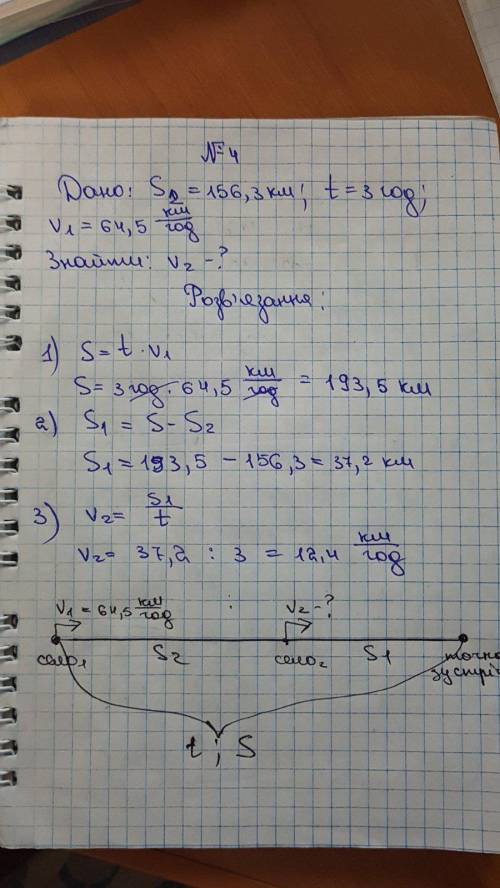 №4
Дано: S₂ = 156,3 км; t = 3 год;
v₁ = 64,5 км/год
Знайти: v₂ - ?
Розв'язання:
1) S = t · v₁
S = 3 год · 64,5 км/год = 193,5 км
2) S₁ = S - S₂
S₁ = 193,5 - 156,3 = 37,2 км
3) v₂ = S₁/t
v₂ = 37,2 : 3 = 12,4 км/год
v₁ = 64,5 км/год v₂ - ?
село₁ S₂ село₂ S₁ точка
зустріч
t ; S